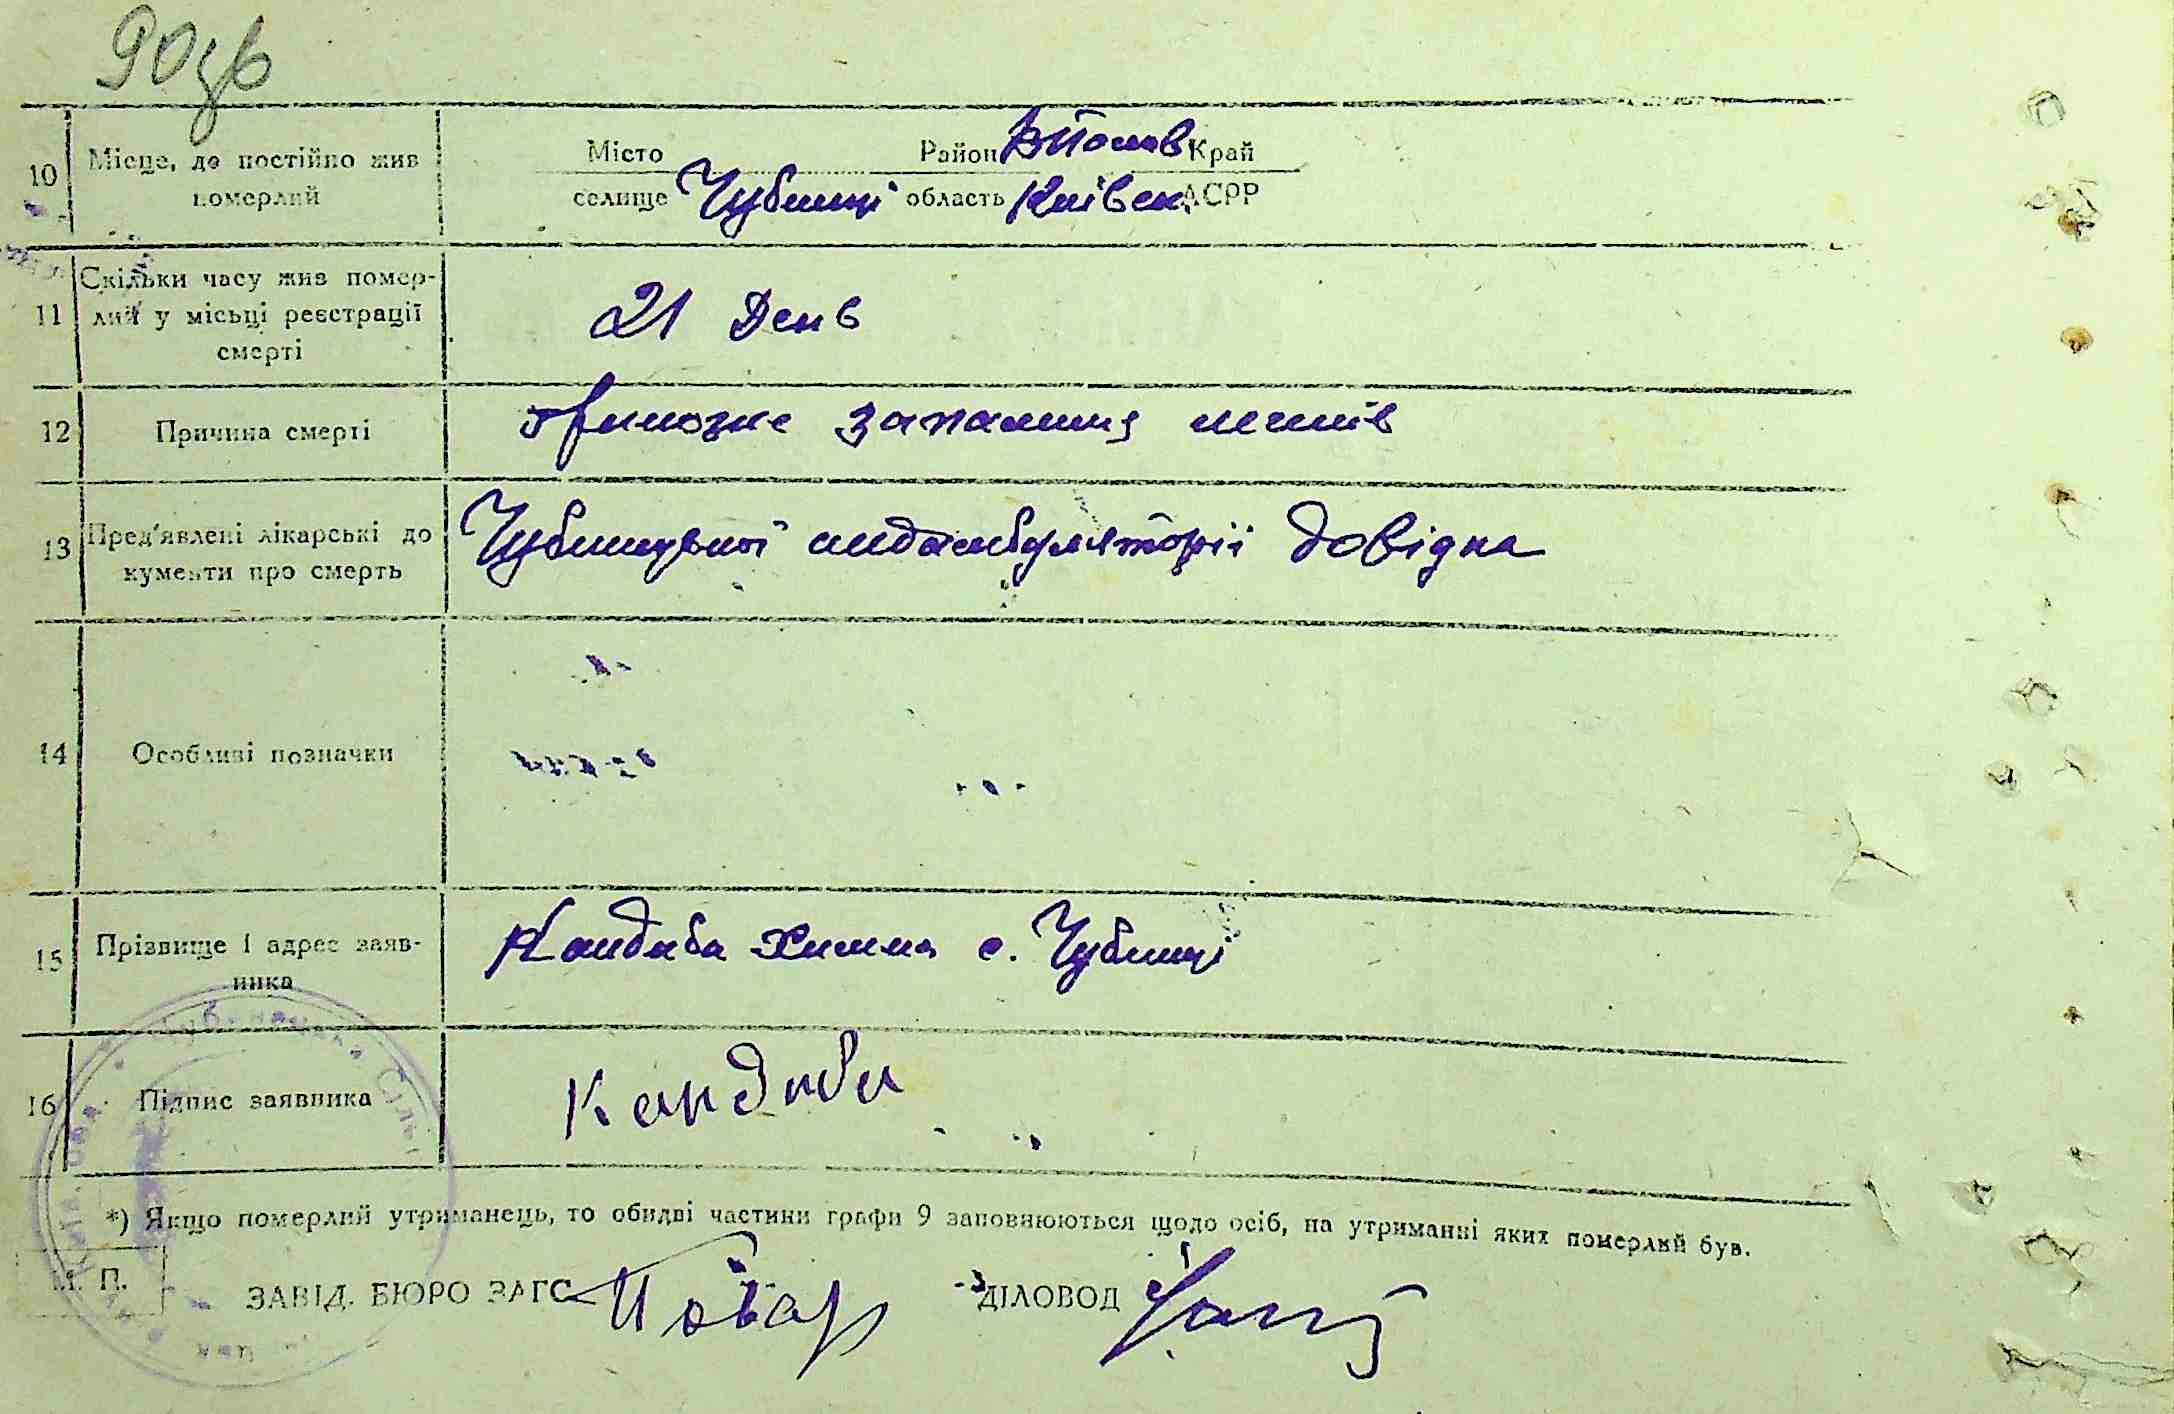 90зв
10 Місце, де постійно жив
померлий
Місто Район Край
селище Чубинці область Київськ АСРР
11 Скільки часу жив помер-
лий у місьці реєстрації
смерті
21 День
12 Причина смерті
грипозне запалення легенів
13 Пред'явлені лікарські до
кументи про смерть
Чубинецької медамбуляторії довідка
14 Особливі позначки
15 Прізвище і адрес заяв-
ника
Кандиба с. Чубинці
16 Підпис заявника
Кандиба
*) Якщо померлий утриманець, то обидві частини графи 9 заповнюються щодо осіб, на утриманні яких померлий був.
М. П.
ЗАВІД. БЮРО ЗАГС ДІЛОВОД